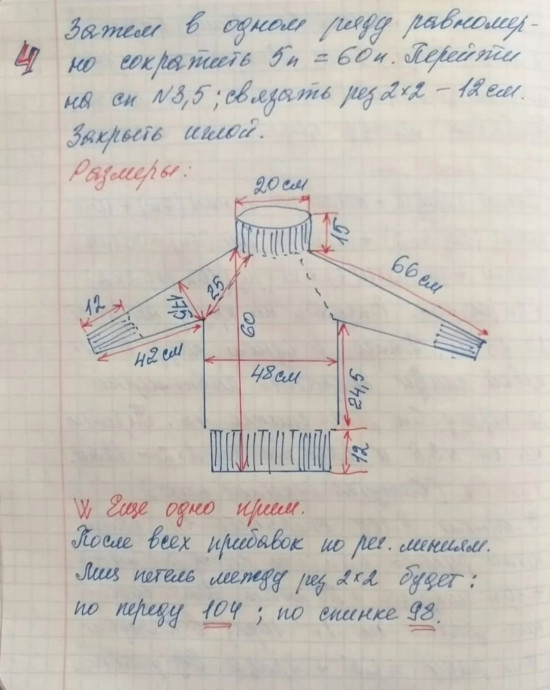 4
Затем в одном ряду равномер-
но сократить 5п = 60п. Перейти
на сп №3,5; связать рез 2×2 – 12см.
Закрыть иглой.
Размеры:
20см
15
66см
12
17,5
25
60
42см
48см
24,5
12
Еще одно прим.
После всех прибавок по рег. линиям.
Лиц петель между рез 2×2 будет:
по переду 104; по спинке 98.